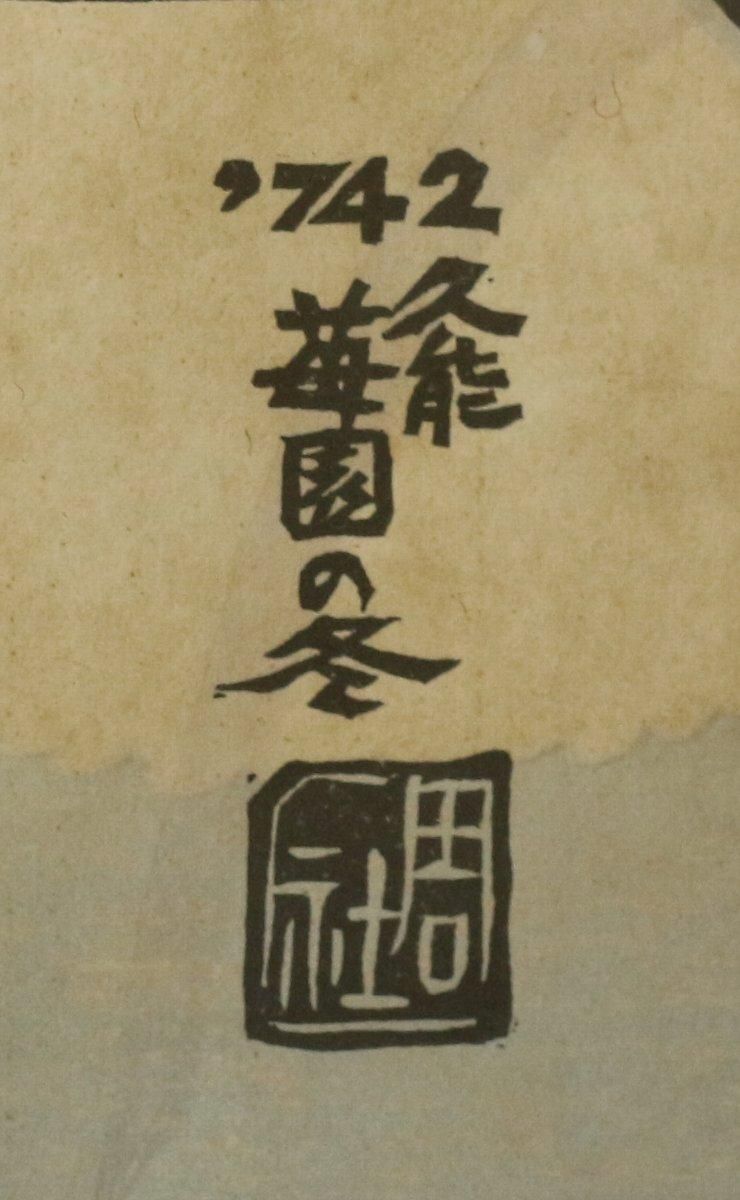 '742
久能
苺園の冬
周社